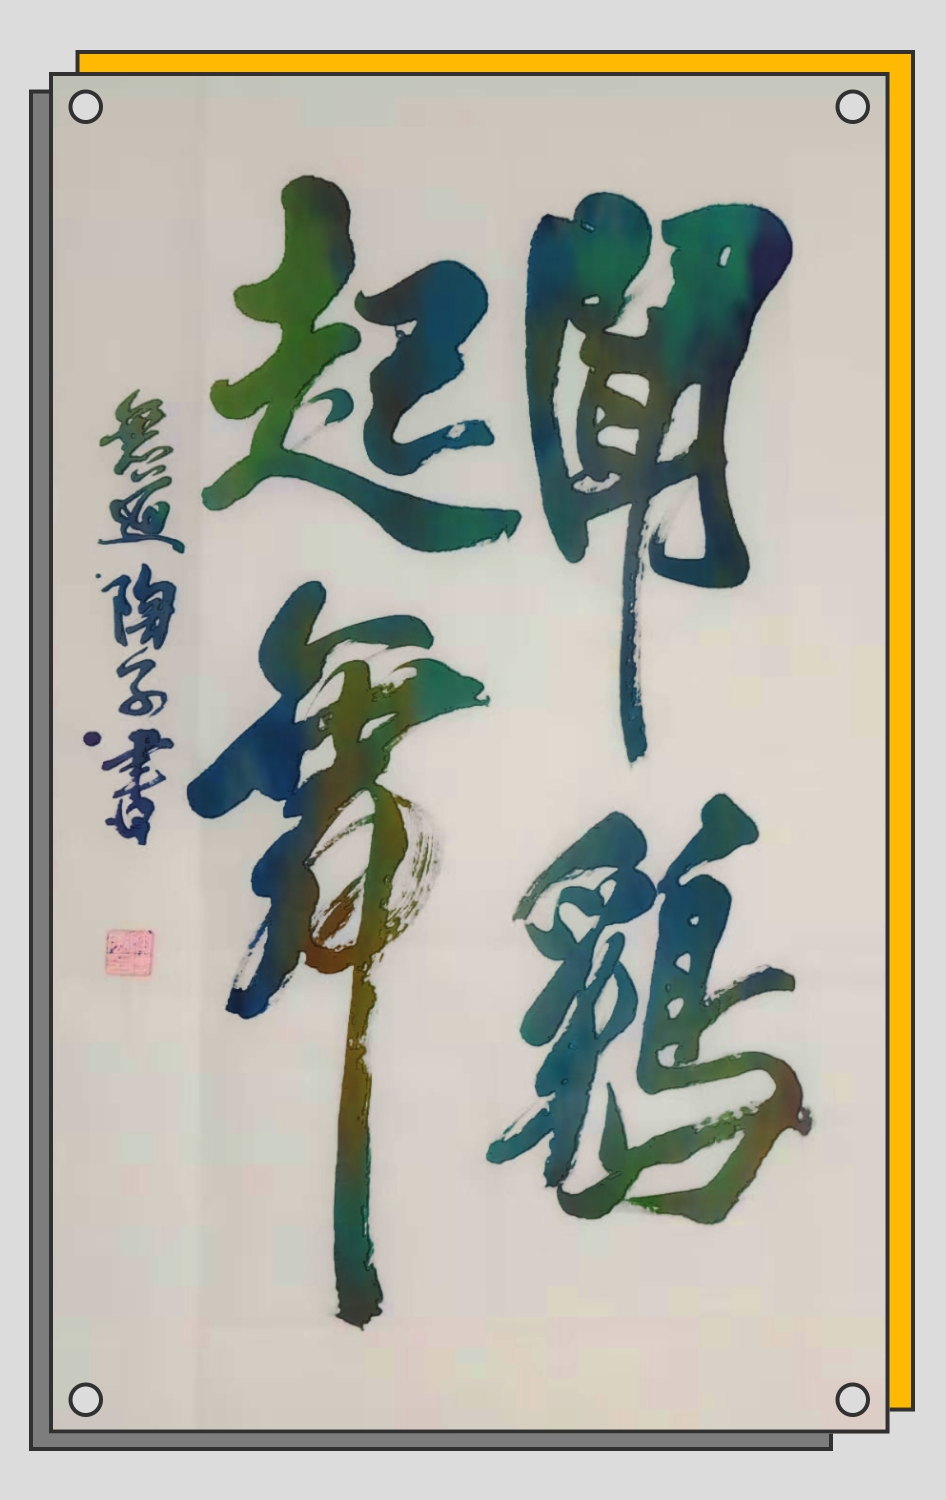 聞鷄
起舞
無逈陶子書